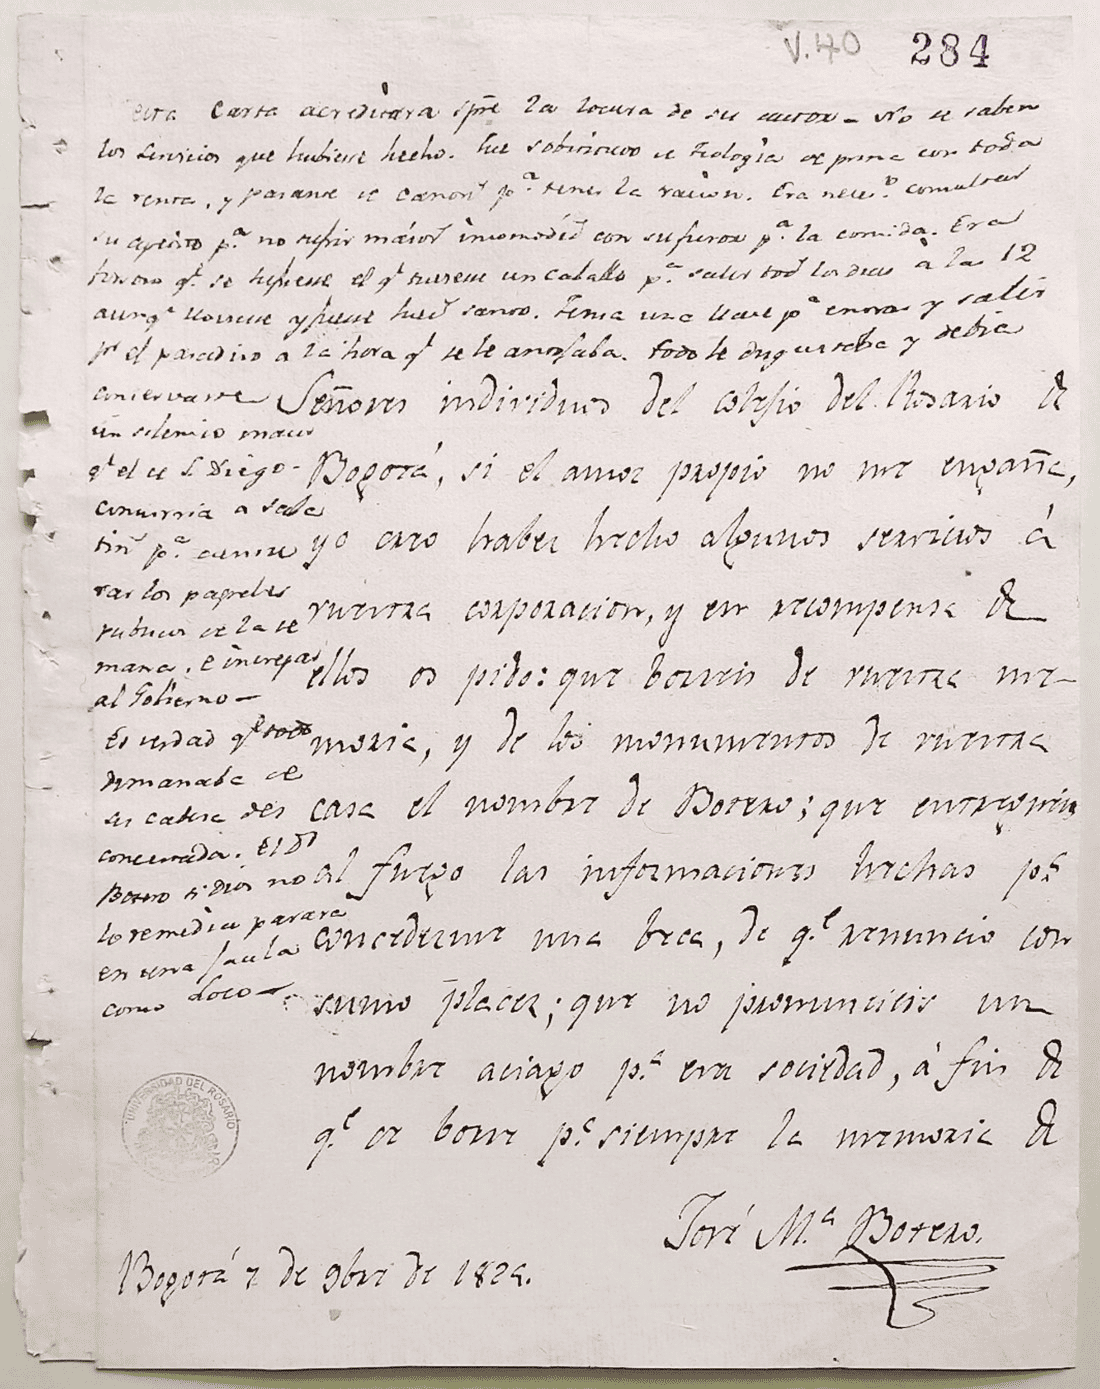 V.40 284
esta Carta acreditara spre. la locura de su autor – No se saben
los servicios que hubiese hecho. fue sobstituto de Teología de prima con toda
la renta, y pasante de Canons pª tener la racion. Era neceº. consultar
su apetito pª no sufrir maior incomodid con su furor pª la comida. Era
forsoso qe se supiese el qe tuviese un caballo pª salir tods los dias à la 12
aunqe lloviese y fuese hued sano. Tenia una llave pª entrar y salir
pr el paradiso a la hora qe se le antojaba. todo le disgustaba y debia
conservarse
un silencio maior
qe el de S Diego –
concurria a sala
pª
rar los papeles
publicos de la se
mana, e increpar
al Gobierno –
Es verdad qe todo
dimanaba de
su cabeza des
concertada. El Dr
Botero si dios no
lo remedia parara
en una jaula
como Loco –
Señores individuos del colejio del Rosario de
Bogotá, si el amor propio no me engaña,
yo creo haber hecho algunos servicios á
vuestra corporacion, y en recompensa de
ellos os pido: que borreis de vuestra me-
moria, y de los monumentos de vuestra
casa el nombre de Botero; que entregueis
al fuego las informaciones hechas pª
concederme una beca, de qe renuncio con
sumo placer; que no pronuncieis un
nombre aciago pª esa sociedad, á fin de
qe se borre pª siempre la memoria de
José Mª Botero.
Bogotá 7 de 9bre de 1824.
UNIVERSIDAD DEL ROSARIO